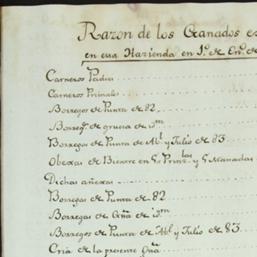 Razon de los Ganados ex
en esa Hacienda en 1º de Enº de
Carneros Padres
Carneros Primales
Borregos de Punta de 82
Borregˢ de
Borregos de Punta de Abˡ y Julio de 83
Obexas de Bientre en
Dichas añexas
Borregas de Punta de 82
Borregas de Cria de
Borregos de Punta de Abˡ y Julio de 83
Cria de la presente